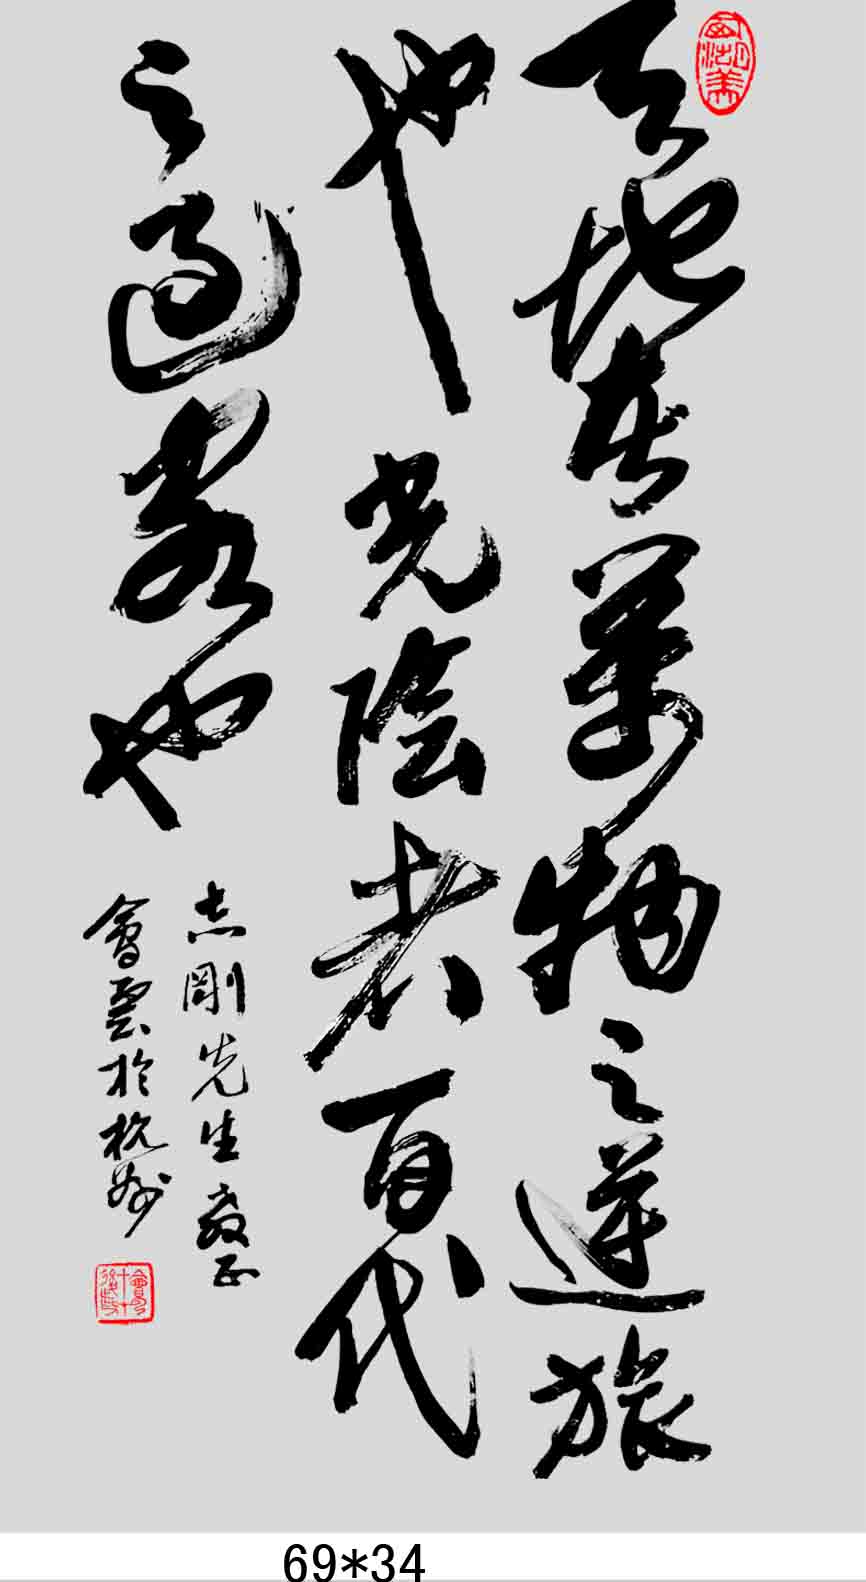 天地者萬物之逆旅
也光陰者百代
之過客也
志剛先生教正
會雲於杭州
69*34